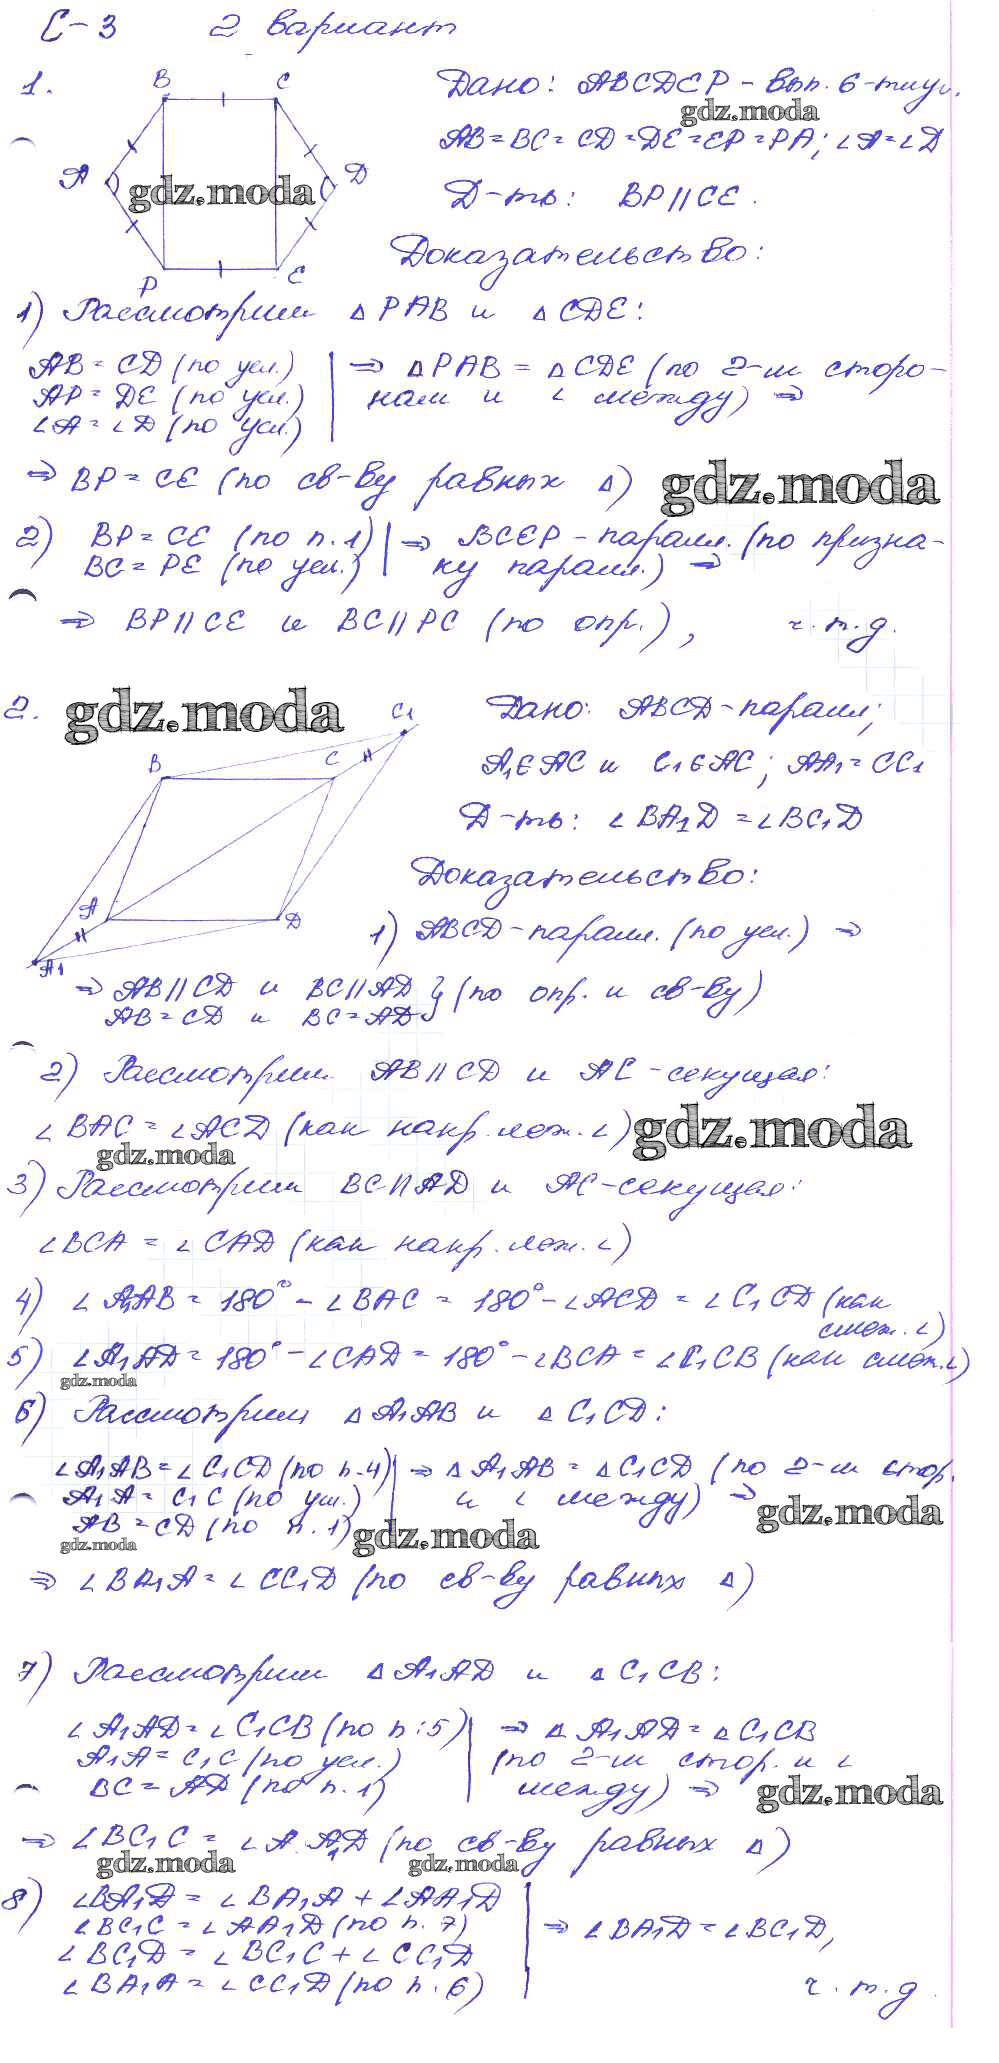 С-3 2 вариант
1.
B C
A D
P E
Дано: ABCDEP - вып. 6-тиуг.
AB=BC=CD=DE=EP=PA; ∠A=∠D
Д-ть: BP||CE.
gdz.moda
gdz.moda
Доказательство:
1) Рассмотрим △PAB и △CDE:
AB=CD (по усл.)
AP=DE (по усл.)
∠A=∠D (по усл.)
⇒ △PAB = △CDE (по 2-м сторо-
нам и ∠ между) ⇒
⇒ BP=CE (по св-ву равных △)
gdz.moda
2) BP=CE (по п.1)
BC=PE (по усл.)
⇒ BCEP - паралл. (по призна-
ку паралл.) ⇒
⇒ BP||CE и BC||PC (по опр.), ч.т.д.
2. gdz.moda
C1
B C
A D
A1
Дано: ABCD-паралл;
A1∈AC и C1∈AC; AA1=CC1
Д-ть: ∠BA1D=∠BC1D
Доказательство:
1) ABCD-паралл. (по усл.) ⇒
⇒ AB||CD и BC||AD } (по опр. и св-ву)
AB=CD и BC=AD
2) Рассмотрим AB||CD и AC-секущая:
∠BAC=∠ACD (как накр. леж. ∠)
gdz.moda
gdz.moda
3) Рассмотрим BC||AD и AC-секущая:
∠BCA = ∠CAD (как накр. леж. ∠)
4) ∠A1AB = 180° - ∠BAC = 180° - ∠ACD = ∠C1CD (как
смеж. ∠)
5) ∠A1AD = 180° - ∠CAD = 180° - ∠BCA = ∠C1CB (как смеж. ∠)
gdz.moda
6) Рассмотрим △A1AB и △C1CD:
∠A1AB=∠C1CD (по п.4)
A1A=C1C (по усл.)
AB=CD (по п.1)
⇒ △A1AB = △C1CD (по 2-м стор.
и ∠ между) ⇒
gdz.moda
gdz.moda
gdz.moda
⇒ ∠BA1A=∠CC1D (по св-ву равных △)
7) Рассмотрим △A1AD и △C1CB:
∠A1AD=∠C1CB (по п.5)
A1A=C1C (по усл.)
BC=AD (по п.1)
⇒ △A1AD=△C1CB
(по 2-м стор. и ∠
между) ⇒
gdz.moda
⇒ ∠BC1C = ∠AA1D (по св-ву равных △)
gdz.moda
gdz.moda
8) ∠BA1D = ∠BA1A + ∠AA1D
∠BC1C = ∠AA1D (по п.7)
∠BC1D = ∠BC1C + ∠CC1D
∠BA1A = ∠CC1D (по п.6)
⇒ ∠BA1D = ∠BC1D,
ч.т.д.